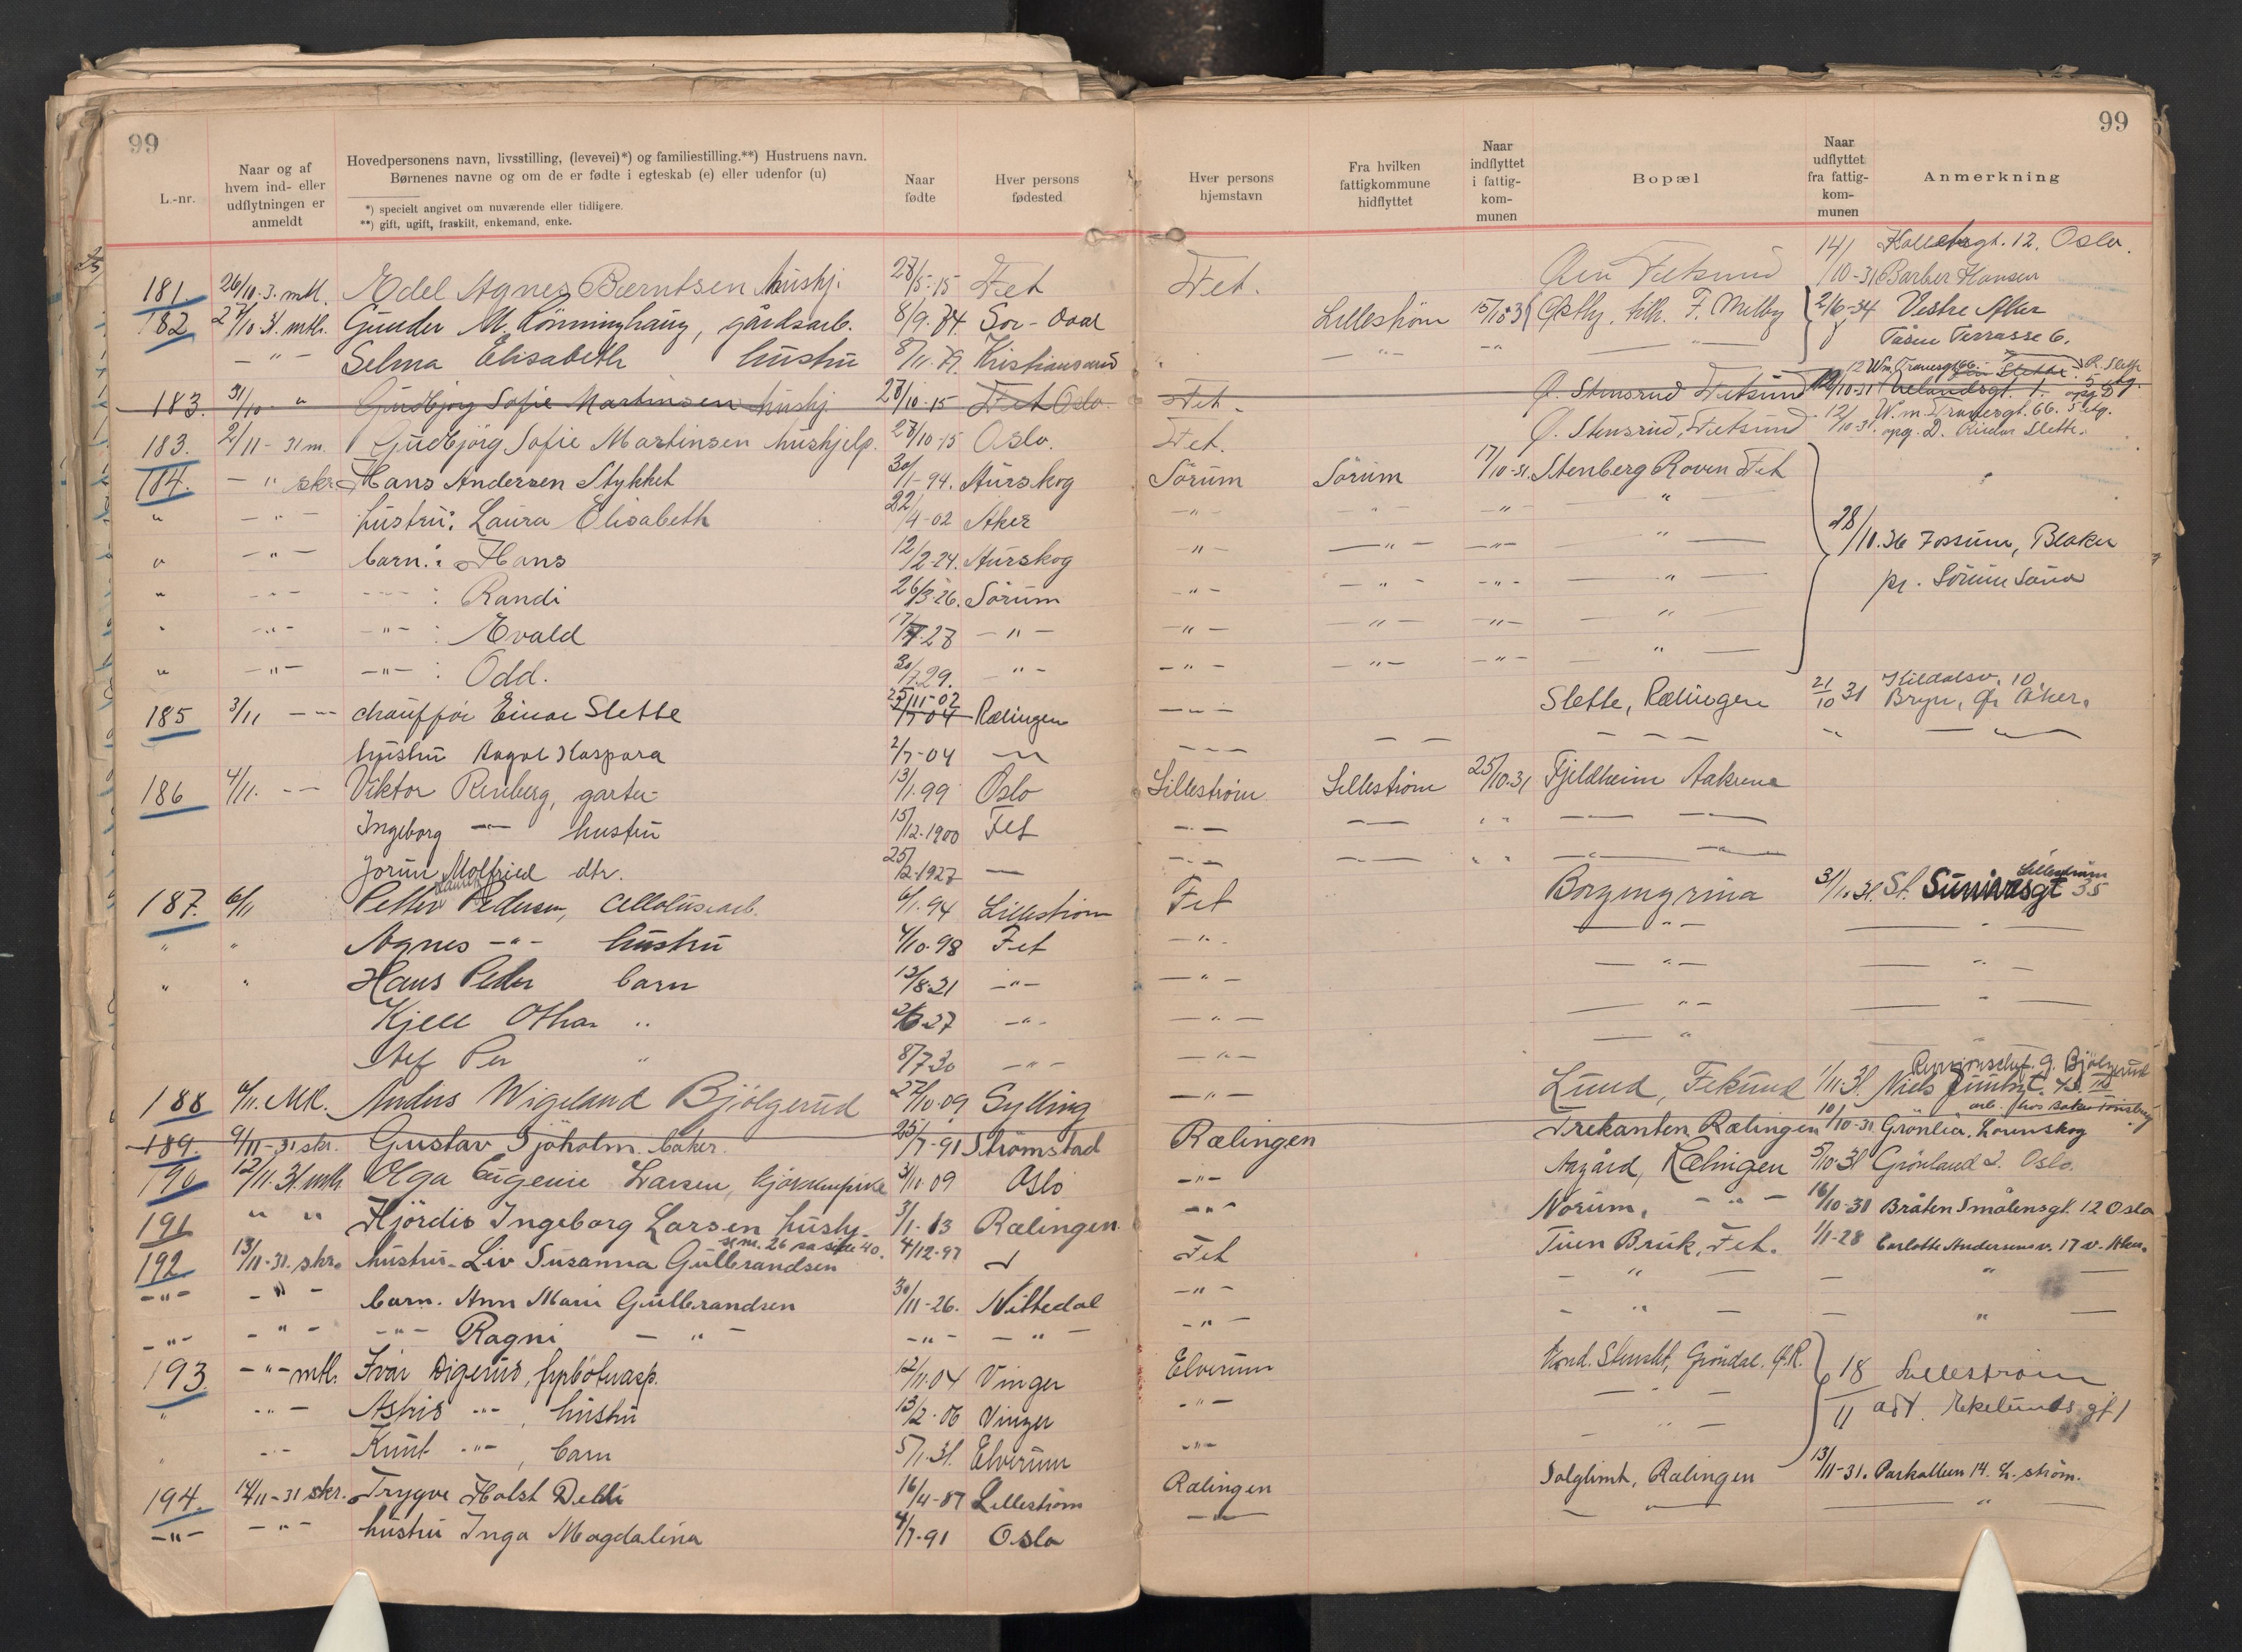 99
99
L.-nr.
Naar og af hvem ind- eller udflytningen er anmeldt
Hovedpersonens navn, livsstilling, (levevei)*) og familiestilling.**) Hustruens navn.
Børnenes navne og om de er fødte i egteskab (e) eller udenfor (u)
*) specielt angivet om nuværende eller tidligere.
**) gift, ugift, fraskilt, enkemand, enke.
Naar fødte
Hver persons fødested
Hver persons hjemstavn
Fra hvilken fattigkommune hidflyttet
Naar indflyttet i fattig-kom-munen
Bopæl
Naar udflyttet fra fattig-kom-munen
Anmerkning
181 26/10-3. mtl. Edel Agnes Berntsen hushj. 28/5-15 Fet Fet. Fetsund 14/10-31 12. Oslo.
Barber Hansen
182 27/10 31. mtl. Gunder M. Rönninghaug, gårdsarb. 8/9.74. Sor-Odal Lilleström 15/10 31 Østby, tilh. F. Melby 2/6-34 Vestre Aker
Tåsen Terrasse 6.
— " — Selma Elisabeth hustru 8/11.79. Kristiansand — " — — " —
183. 31/10 " Gudbjorg Sofie Martinsen hushj. 28/10-15 Fet Oslo Fet. Ø. Stensrud Fetsund
183. 2/11-31 m. Gudbjörg Sofie Martinsen hushjelp. 28/10-15 Oslo. Fet. Ø. Stensrud, Fetsund 12/10-31. W.m. Tranesgt. 66. 5 etg.
opg. D. Einar Slette.
184. — " skr. Hans Andersen Stykket 30/1-94. Aurskog Sörum Sörum 17/10-31. Stenberg Roven Fet
" — " — hustru: Laura Elisabeth 22/4-02 Aker — " — — " — — " — — " —
" — " — barn: Hans 12/2-24. Aurskog — " — — " — — " — — " — 28/10.36 Fossum, Blaker
" — " — — " — : Randi 26/3-26. Sörum — " — — " — — " — — " — pr. Sörumsand
" — " — — " — : Evald 17/7.28 — " — — " — — " — — " — — " —
" — " — — " — : Odd. 30/7.29. — " — — " — — " — — " — — " —
185 3/11 — " — chauffør Einar Slette 25/11-02 Rælingen — " — Slette, Rælingen 21/10 31 Hildalsv. 10
Bryn, Ø. Aker.
hustru Aagot Kaspara 2/7-04 — " —
186 4/11. — " — Viktor Renberg, gartner 13/1.99 Oslo Lilleström Lilleström 25/10.31 Fjeldheim Aakrene
Ingeborg — " — hustru 15/12.1900 Fet — " —
Jorun Molfried dtr. 25/2.1927 —
187. 6/11 Petter Laurits Pedersen, cellulosearb. 6/1.94 Lilleström Fet Borgengrina 31/10.31. St. Sunivasgt 35 Lilleström
" " Agnes — " — hustru 4/10.98 Fet — " —
" " Hans Peder barn 13/8.21 — " — — " —
Kjell Othar " 27 — " — — " —
Leif Per " 8/7.30 — " — — " —
188 6/11. Mtl. Anders Wigeland Bjölgerud 27/10.09 Sylling — " — Lund, Fetsund 1/11.31. G. Bjölgerud
Niels Juulsgt.
189. 9/11-31 skr. Gustav Sjöholm. baker. 25/7-91 Strömstad Rælingen Trekanten Rælingen 10/10-31 Grönlia. Lorenskog
190 12/11.31. mtl. Olga Eugenie Larsen, kjøkkenpike 3/11.09 Oslo — " — Aagård, Rælingen 5/10.31 Grönland 2. Oslo.
191 " " Hjördis Ingeborg Larsen hushj. 3/1-13 Rælingen. — " — Norum, — " — 16/10-31 Bråten Smålensgt. 12 Oslo
se nr. 26 på side 40.
192 13/11-31. skr. hustru. Liv Susanna Gulbrandsen 4/12-97 Fet Tuen Bruk, Fet. 1/1-28 Carlotte Andersens v. 17 v. Aker.
— " — — " — barn. Ann Marie Gulbrandsen 30/11-26. Nittedal — " — — " — — " —
— " — — " — — " — Ragni — " — — " — — " — — " — — " — — " —
193 — " — mtl. Ivar Digerud, fyrbøterasp. 12/11.04 Vinger Elverum Grøndal. Ø.R. 18/11 Lilleström
adr. Ekelundsgt 1
" — " — Astrid — " —, hustru 13/2.06 Vinger — " —
— " — Knut — " —, barn 5/1.31. Elverum — " —
194. 14/11-31 skr. Trygve Holst Dehli 16/4-87 Lilleström Rælingen Solglimt, Rælingen 13/11-31. Parkalleen 14. L.-ström.
— " — — " — hustru Inga Magdalena 4/7-91 Oslo — " — — " — — " —